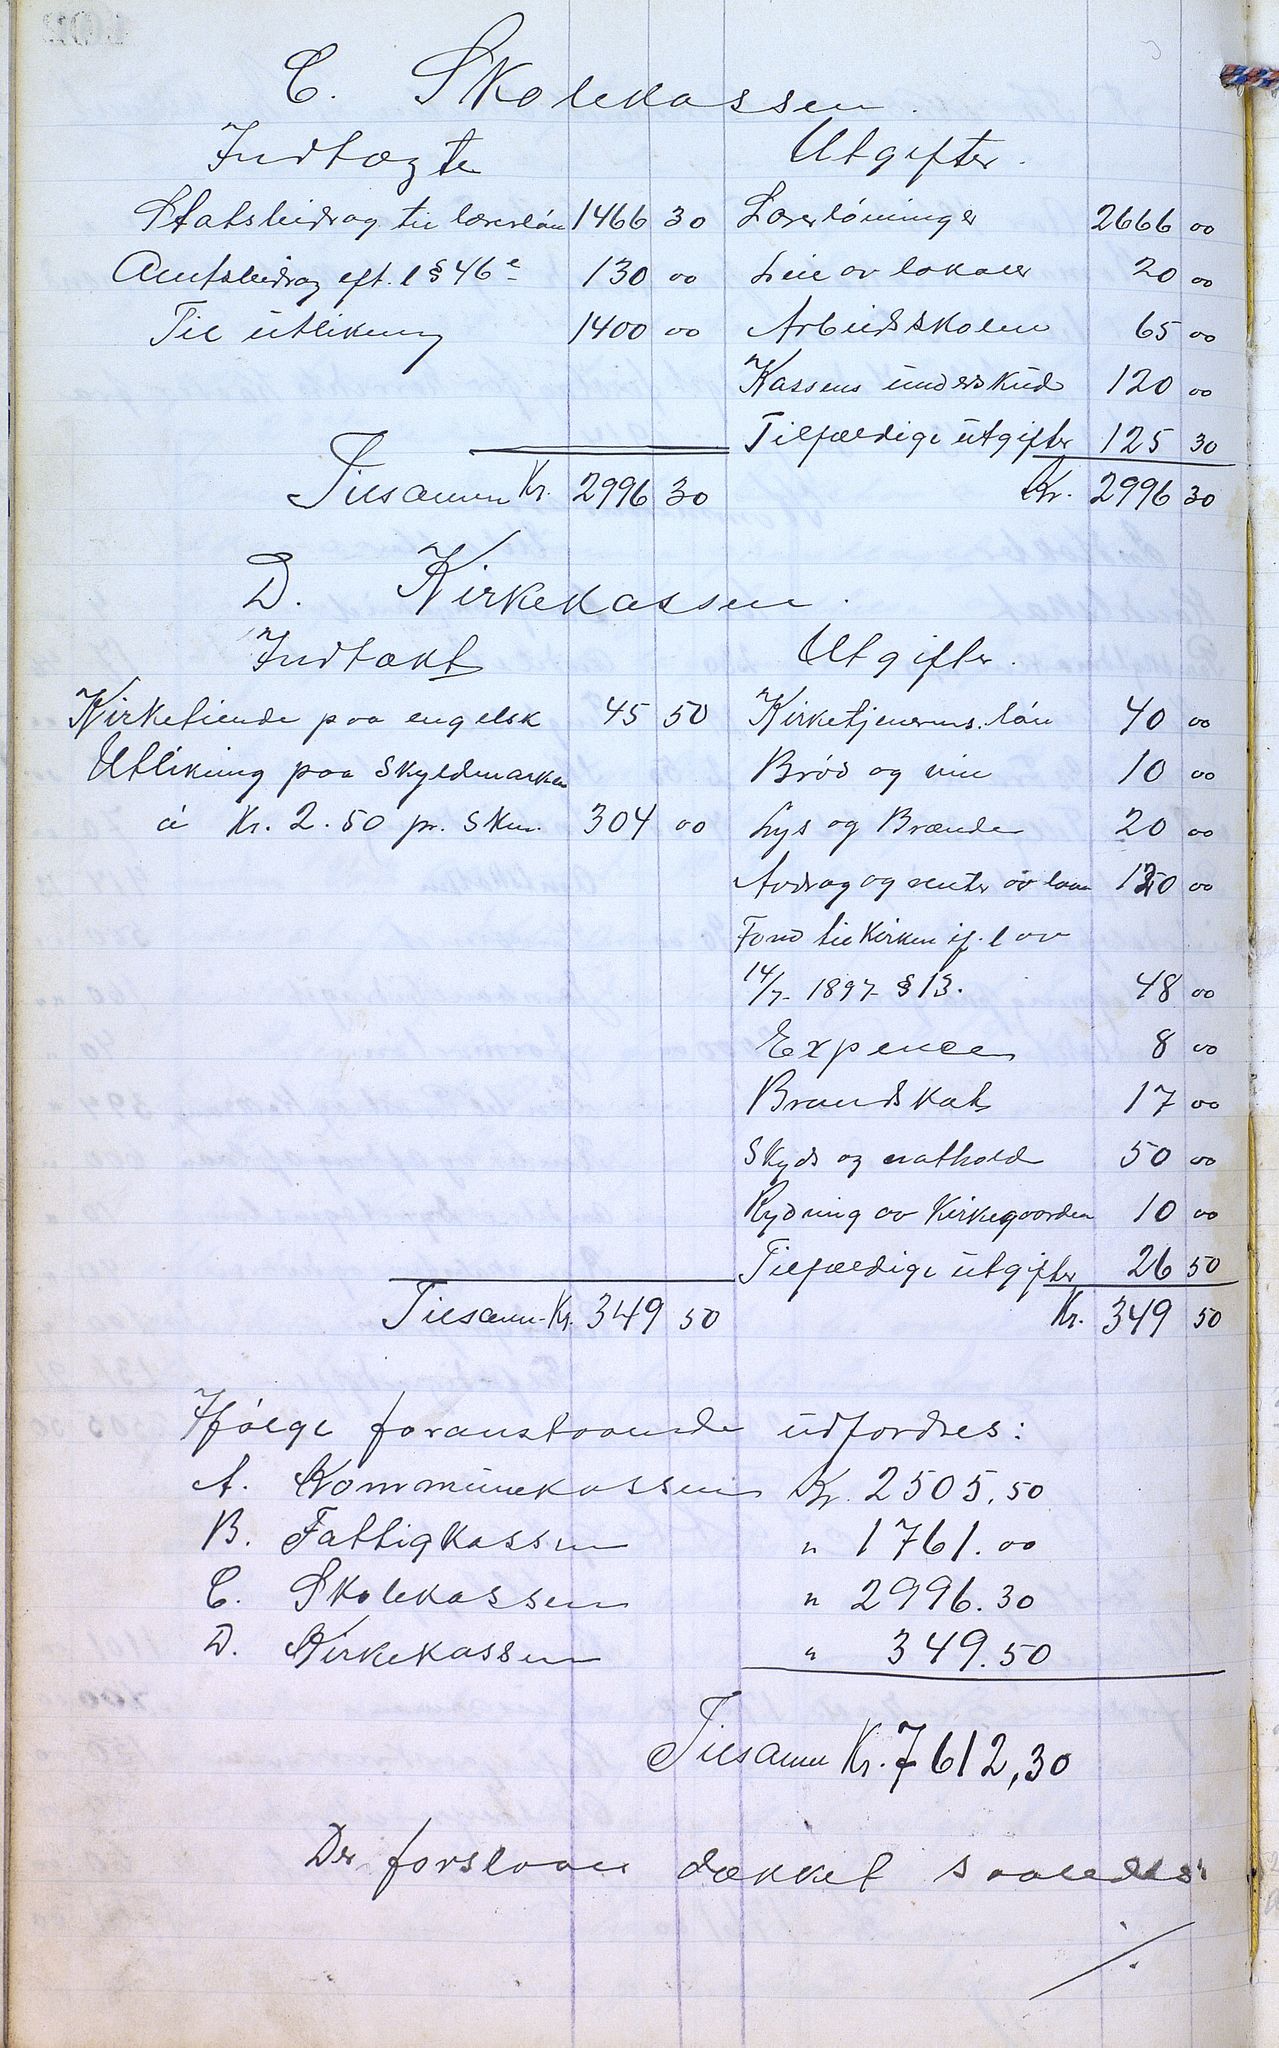 C. Skolekassen.
Indtægte Utgifter.
Statsbidrag til lærerløn 1466 30 Lærerløninger 2666 00
Amtsbidrag eft. l § 46 e 130 00 Leie av lokaler 20 00
Til utlikning 1400 00 Arbeidsskolen 65 00
Kassens underskud 120 00
Tilfældige utgifter 125 30
Tilsamm Kr. 2996 30 Kr. 2996 30
D. Kirkekassen.
Indtækt Utgifter.
Kirketiende paa engelsk 45 50 Kirketjenerens løn 40 00
Utlikning paa Skyldmarken Brød og vin 10 00
á Kr. 2.50 pr. Skm. 304 00 Lys og Brænde 20 00
Avdrag og renter av laan 120 00
Fond til Kirken if. lov
14/7 1897 § 13. 48 00
Expencer 8 00
Brandskat 17 00
Skyds og nathold 50 00
Rydning av Kirkegaarden 10 00
Tilfældige utgifter 26 50
Tilsam. Kr. 349 50 Kr. 349 50
Ifølge foranstaaende udfordres:
A. Kommunekassen Kr. 2505.50
B. Fattigkassen " 1761.00
C. Skolekassen " 2996.30
D. Kirkekassen " 349.50
Tilsamm Kr. 7612,30
Der forslaaes dækket saaledes:
./.